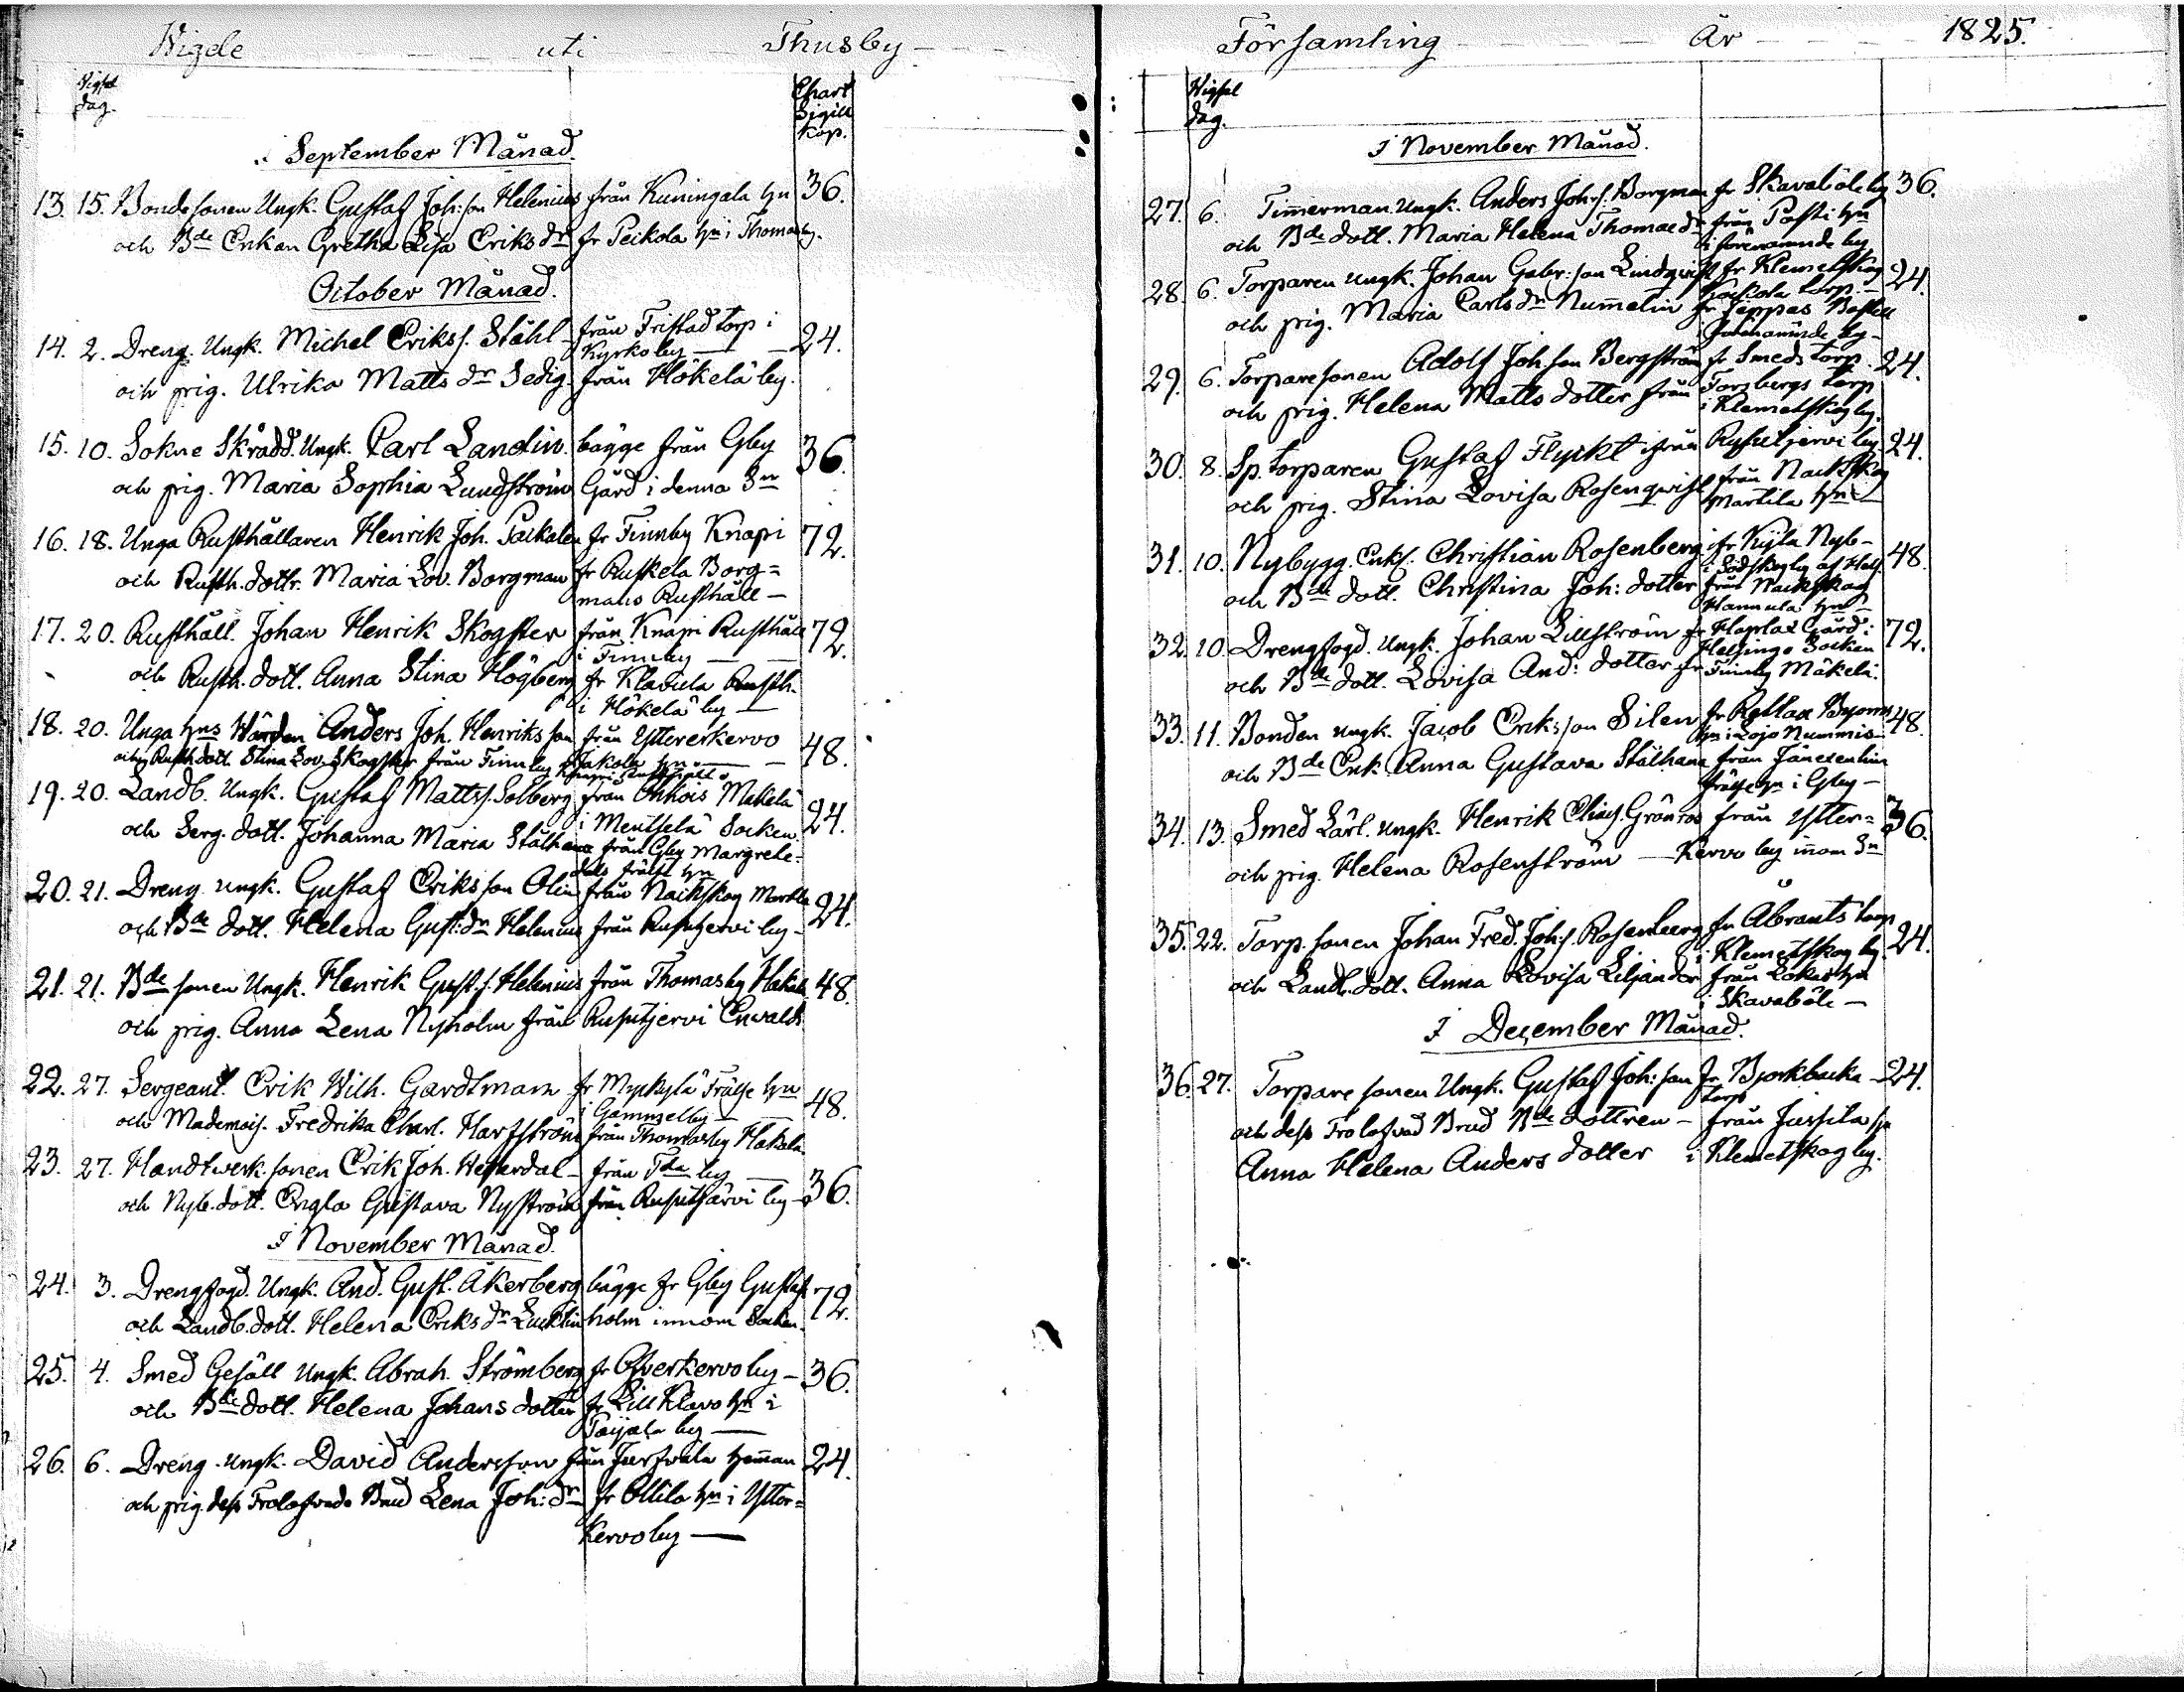 Wigde uti Thusby
Wigsel dag.
Chart Sigill Kop.
September Månad.
13. 15. Bondesonen Ungk. Gustaf Joh:son Helenius från Kuningala hn 36.
och Bde Enkan Gretha Lisa Eriks dr fr Peikola hn i Thomasby.
October Månad.
14. 2. Dreng. Ungk. Michel Erikss. Ståhl från Fristad torp i Kyrkoby 24.
och pig. Ulrika Matts dr Sedig från Hökelä by.
15. 10. Sokne Skrädd. Ungk. Carl Landin bägge från Gby 36.
och pig. Maria Sophia Lundström Gård i denna Sn
16. 18. Unga Rusthållaren Henrik Joh. Paikalen fr Finnby Knapi 72.
och Rusth. dottr. Maria Lov. Borgman fr Ruskela Borg=
mans Rusthåll
17. 20. Rusthåll. Johan Henrik Skogster från Knapi Rusthåll 72.
i Finnby
och Rusth. dott. Anna Stina Högberg fr Klavula Rusth.
i Hökelä by
18. 20. Unga hns Wärden Anders Joh. Henriksson från Yttererkervo 48.
och Rusth dott. Stina Lov. Skogster från Finnby Jakola hn
Knapi Rusthålt
19. 20. Landb. Ungk. Gustaf Mattss. Solberg från Ohkois Makelä 24.
i Mentselä Socken
och Serg. dott. Johanna Maria Stålhana från Gby Margrete-
dals frälse hn
20. 21. Dreng. ungk. Gustaf Eriksson Olin från Nackskog Martila 24.
och Bde dott. Helena Gust:dr Helenius från Rusutjervi by
21. 21. Bde sonen Ungk. Henrik Gust.s. Helenius från Thomasby Hakala 48.
och pig. Anna Lena Nyholm från Rusutjervi Envalds
22. 27. Sergeant. Erik Wilh. Gardtman fr Myrkylä Frälse hn 48.
i Gammelby
och Mademois. Fredrika Charl. Harfström från Thomasby Hakala
23. 27. Handtwerk.sonen Erik Joh. Westerdal från Tda by 36.
och Nyb. dott. Engla Gustava Nyström från Rusutjärvi by
I November Månad.
24. 3. Drengfogd. Ungk. And. Gust. Åkerberg bägge fr Gby Gustaf 72.
och Landb. dott. Helena Eriks dr Lucktin holm innom Socken.
25. 4. Smed Gesäll Ungk. Abrah. Strömberg fr Öfverkervo by 36.
och Bde dott. Helena Johans dotter fr Lill Klavo hn i
Paijala by
26. 6. Dreng. ungk. David Andersson från Jursvala hemman 24.
och pig. dess Trolofvade Brud Lena Joh: dr fr Ollila hn i Ytter=
Kervo by
Församling År 1825.
Wigsel dag.
I November Månad.
27. 6. Timmerman. Ungk. Anders Johs. Borgman fr Skavaböle by 36.
och Bde dott. Maria Helena Thomae dr från Pasti hn
i förenämnde by
28. 6. Torparen ungk. Johan Gabr:son Lindqvist fr Klemetskog 24.
torp.
och pig. Maria Carls dr Nummelin fr Jeppas Bostell
i förenämnde by
29. 6. Torparesonen Adolf Johsson Bergström fr Smeds torp. 24.
och pig. Helena Matts dotter från Forsbergs torp
i Klemetskog by.
30. 8. Sp. torparen Gustaf Flyckt ifrån Rusutjervi by 24.
och pig. Stina Lovisa Rosenqvist från Nackskog
Martila hn
31. 10. Nybygg. Enkl. Christian Rosenberg fr Kyla Nyb- 48.
och Bde dott. Christina Joh: dotter från Nackskog
Hannula hn
32. 10. Drengfogd. Ungk. Johan Lillström fr Haxlax Gård i 72.
Helsinge Socken
och Bde dott. Lovisa And: dotter fr Finnby Mäkelä.
33. 11. Bonden ungk. Jacob Eriksson Silen fr Rettax Byoms 48.
hn i Lojo Nummis
och Bde Enk. Anna Gustava Stålhana från
frälse hn i Gby
34. 13. Smed Lärl. ungk. Henrik Eliass. Grönros från Ytter= 36.
och pig. Helena Rosenström Kervo by innom Sn
35. 22. Torp. sonen Johan Fred. Johs. Rosenberg fr Åbrants torp 24.
i Klemetskog by
och Landb. dott. Anna Lovisa Liljander från Lokas hn
i Skavaböle
I December Månad.
36. 27. Torpare sonen Ungk. Gustaf Joh:son fr. Bjorkbacka 24.
torp
och dess Trolofvad Brud Bde dottren från Jussila
Anna Helena Anders dotter i Klemetskog by.